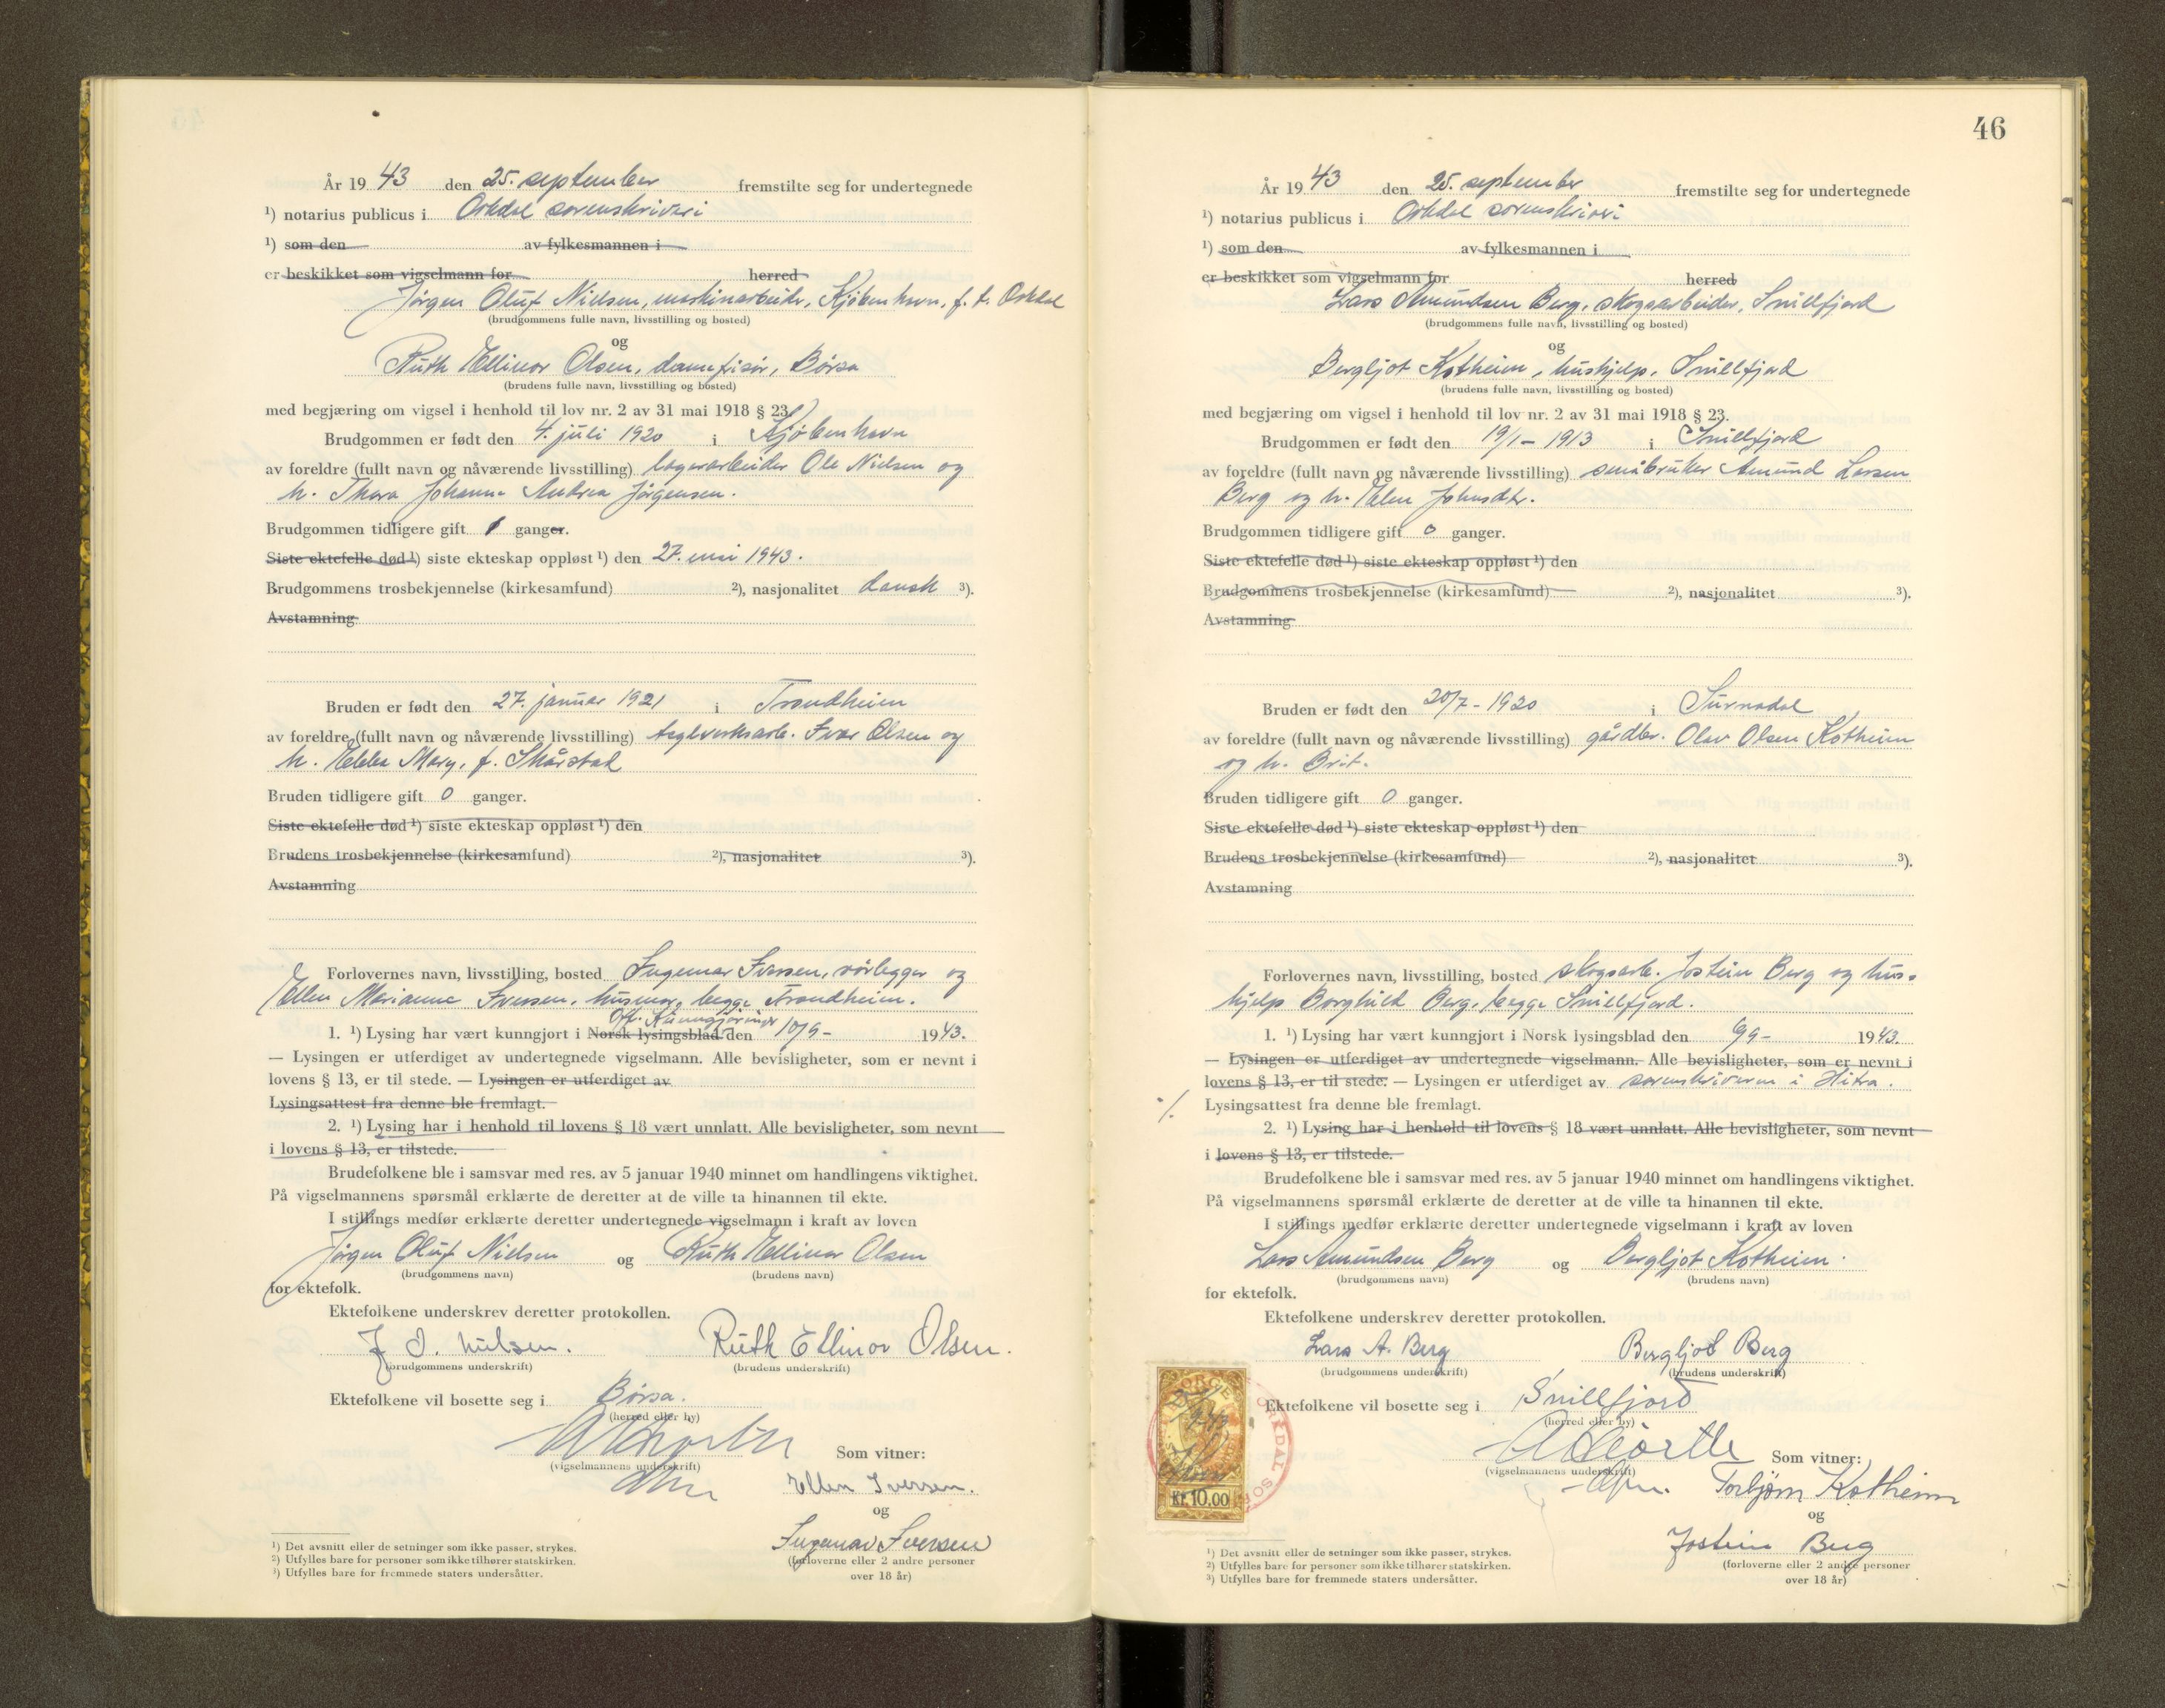 År 19 43 den 25. september fremstilte seg for undertegnede
¹) notarius publicus i Orkdal sorenskriveri
¹) som den av fylkesmannen i
er beskikket som vigselmann for herred
Jörgen Oluf Nielsen, maskinarbeider, Kjöbenhavn, f. t. Orkdal
(brudgommens fulle navn, livsstilling og bosted)
og
Ruth Ellinor Olsen, damefrisör, Börsa
(brudens fulle navn, livsstilling og bosted)
med begjæring om vigsel i henhold til lov nr. 2 av 31 mai 1918 § 23.
Brudgommen er født den 4. juli 1920 i Kjöbenhavn
av foreldre (fullt navn og nåværende livsstilling) lagerarbeider Ole Nielsen og
h. Thora Johanne Andrea Jörgensen.
Brudgommen tidligere gift 1 ganger.
Siste ektefelle død ¹) siste ekteskap oppløst ¹) den 27. mai 1943.
Brudgommens trosbekjennelse (kirkesamfund) ²), nasjonalitet dansk ³).
Avstamning
Bruden er født den 27. januar 1921 i Trondheim
av foreldre (fullt navn og nåværende livsstilling) teglverksarb. Ivar Olsen og
h. Ebba Mary, f. Skårstad
Bruden tidligere gift 0 ganger.
Siste ektefelle død ¹) siste ekteskap oppløst ¹) den
Brudens trosbekjennelse (kirkesamfund) ²), nasjonalitet ³).
Avstamning
Forlovernes navn, livsstilling, bosted Ingemar Iversen, rörlegger og
Ellen Marianne Iversen, husmor, begge Trondheim.
Off. Kunngjöringer
1. ¹) Lysing har vært kunngjort i Norsk lysingsblad den 10/9 - 1943.
— Lysingen er utferdiget av undertegnede vigselmann. Alle bevisligheter, som er nevnt i
lovens § 13, er til stede. — Lysingen er utferdiget av
Lysingsattest fra denne ble fremlagt.
2. ¹) Lysing har i henhold til lovens § 18 vært unnlatt. Alle bevisligheter, som nevnt
i lovens § 13, er tilstede.
Brudefolkene ble i samsvar med res. av 5 januar 1940 minnet om handlingens viktighet.
På vigselmannens spørsmål erklærte de deretter at de ville ta hinannen til ekte.
I stillings medfør erklærte deretter undertegnede vigselmann i kraft av loven
Jörgen Oluf Nielsen og Ruth Ellinor Olsen
(brudgommens navn) (brudens navn)
for ektefolk.
Ektefolkene underskrev deretter protokollen.
J O. Nielsen. Ruth Ellinor Olsen.
(brudgommens underskrift) (brudens underskrift)
Ektefolkene vil bosette seg i Börsa.
(herred eller by)
Som vitner:
(vigselmannens underskrift)
Ellen Iversen.
og
Ingemar Iversen
(forloverne eller 2 andre personer
over 18 år)
¹) Det avsnitt eller de setninger som ikke passer, strykes.
²) Utfylles bare for personer som ikke tilhører statskirken.
³) Utfylles bare for fremmede staters undersåtter.
46
År 19 43 den 25. september fremstilte seg for undertegnede
¹) notarius publicus i Orkdal sorenskriveri
¹) som den av fylkesmannen i
er beskikket som vigselmann for herred
Lars Amundsen Berg, skogsarbeider, Snillfjord
(brudgommens fulle navn, livsstilling og bosted)
og
Bergljot Kotheim, hushjelp, Snillfjord
(brudens fulle navn, livsstilling og bosted)
med begjæring om vigsel i henhold til lov nr. 2 av 31 mai 1918 § 23.
Brudgommen er født den 19/1 - 1913 i Snillfjord
av foreldre (fullt navn og nåværende livsstilling) småbruker Amund Larsen
Berg og h. Elen Johnsdtr.
Brudgommen tidligere gift 0 ganger.
Siste ektefelle død ¹) siste ekteskap oppløst ¹) den
Brudgommens trosbekjennelse (kirkesamfund) ²), nasjonalitet ³).
Avstamning
Bruden er født den 20/7 - 1920 i Surnadal
av foreldre (fullt navn og nåværende livsstilling) gårdbr. Olav Olsen Kotheim
og h. Brit.
Bruden tidligere gift 0 ganger.
Siste ektefelle død ¹) siste ekteskap oppløst ¹) den
Brudens trosbekjennelse (kirkesamfund) ²), nasjonalitet ³).
Avstamning
Forlovernes navn, livsstilling, bosted skogsarb. Jostein Berg og hus-
hjelp Borghild Berg, begge Snillfjord.
1. ¹) Lysing har vært kunngjort i Norsk lysingsblad den 1943.
— Lysingen er utferdiget av undertegnede vigselmann. Alle bevisligheter, som er nevnt i
lovens § 13, er til stede. — Lysingen er utferdiget av sorenskriveren i Hitra.
Lysingsattest fra denne ble fremlagt.
2. ¹) Lysing har i henhold til lovens § 18 vært unnlatt. Alle bevisligheter, som nevnt
i lovens § 13, er tilstede.
Brudefolkene ble i samsvar med res. av 5 januar 1940 minnet om handlingens viktighet.
På vigselmannens spørsmål erklærte de deretter at de ville ta hinannen til ekte.
I stillings medfør erklærte deretter undertegnede vigselmann i kraft av loven
Lars Amundsen Berg og Bergljot Kotheim
(brudgommens navn) (brudens navn)
for ektefolk.
Ektefolkene underskrev deretter protokollen.
Lars A. Berg Bergljot Berg
(brudgommens underskrift) (brudens underskrift)
Ektefolkene vil bosette seg i Snillfjord
(herred eller by)
Som vitner:
(vigselmannens underskrift)
Torbjörn Kotheim
og
Jostein Berg
(forloverne eller 2 andre personer
over 18 år)
NORGE
Kr. 10,00
¹) Det avsnitt eller de setninger som ikke passer, strykes.
²) Utfylles bare for personer som ikke tilhører statskirken.
³) Utfylles bare for fremmede staters undersåtter.